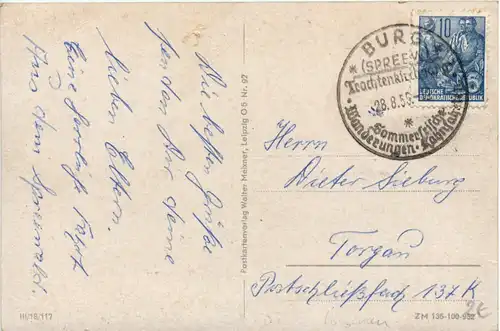 Die besten Grüße
senden Dir Deine
lieben Eltern.
Eine herrliche Fahrt
Aus dem Spreewald.
III/18/117
Postkartenverlag Walter Meixner, Leipzig O 5 Nr. 92
BURG
(SPREEW)
Trachtenkirch
28.8.55
Sommerfrische
Wanderungen · Kahnfah
10
DEUTSCHE
DEMOKRATISCHE REPUBLIK
Herrn
Dieter Sieburg
Torgau
Postschließfach 137 K
2€